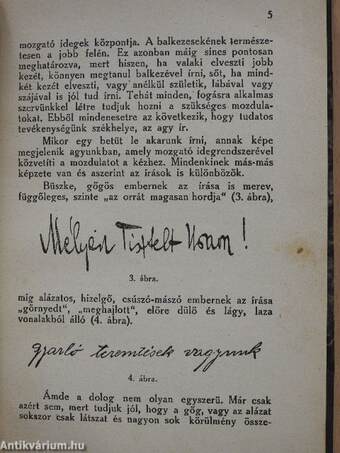 5
mozgató idegek központja. A balkezesekének természe-
tesen a jobb felén. Ez azonban máig sincs pontosan
meghatározva, mert hiszen, ha valaki elveszti jobb
kezét, könnyen megtanul balkezével írni, sőt, ha mind-
két kezét elveszti, vagy anélkül születik, lábával vagy
szájával is jól tud írni. Tehát minden, fogásra alkalmas
szervünkkel létre tudjuk hozni a szükséges mozdula-
tokat. Ebből mindenesetre az következik, hogy tudatos
tevékenységünk székhelye, az agy ír.
Mikor egy betüt le akarunk írni, annak képe
megjelenik agyunkban, amely mozgató idegrendszerével
közvetíti a mozdulatot a kézhez. Mindenkinek más-más
képzete van és aszerint az írások is különbözők.
Büszke, gőgös embernek az írása is merev,
függőleges, szinte „az orrát magasan hordja" (3. ábra),
Mélyen Tisztelt Uram!
3. ábra.
míg alázatos, hizelgő, csúszó-mászó embernek az írása
„görnyedt", „meghajlott", előre dülő és lágy, laza
vonalakból álló (4. ábra).
gyarló teremtések vagyunk
4. ábra.
Ámde a dolog nem olyan egyszerű. Már csak
azért sem, mert tudjuk jól, hogy a gőg, vagy az alázat
sokszor csak látszat és nagyon sok körülmény össze-
Antikvárium.hu